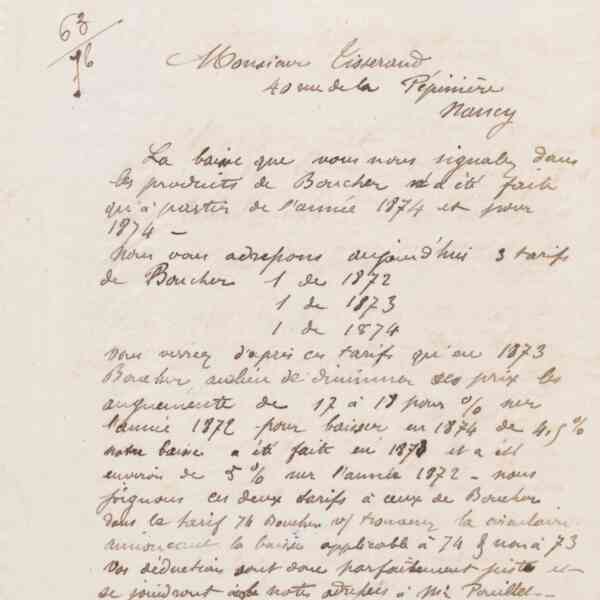 63
76
Monsieur Tisserand
40 rue de la Pépinière
Nancy
La baisse que vous nous signalez dans
les produits de Boucher n'a été faite
qu'à partir de l'année 1874 et pour
1874 –
Nous vous adressons aujourd'hui 3 tarifs
de Boucher 1 de 1872
1 de 1873
1 de 1874
vous verrez d'après ces tarifs qu'en 1873
Boucher, au lieu de diminuer ses prix les
augmente de 17 à 18 pour % sur
l'année 1872 pour baisser en 1874 de 4.5 %
notre baisse a été faite en 1873 et a été
environ de 5 % sur l'année 1872 – nous
joignons ces deux tarifs à ceux de Boucher
dans le tarif 74 Boucher v/ trouverez la circulaire
annonçant la baisse applicable à 74 & non à 73
Vos déductions sont donc parfaitement justes et
se joindront à notes adressées à Mr Pouillet –